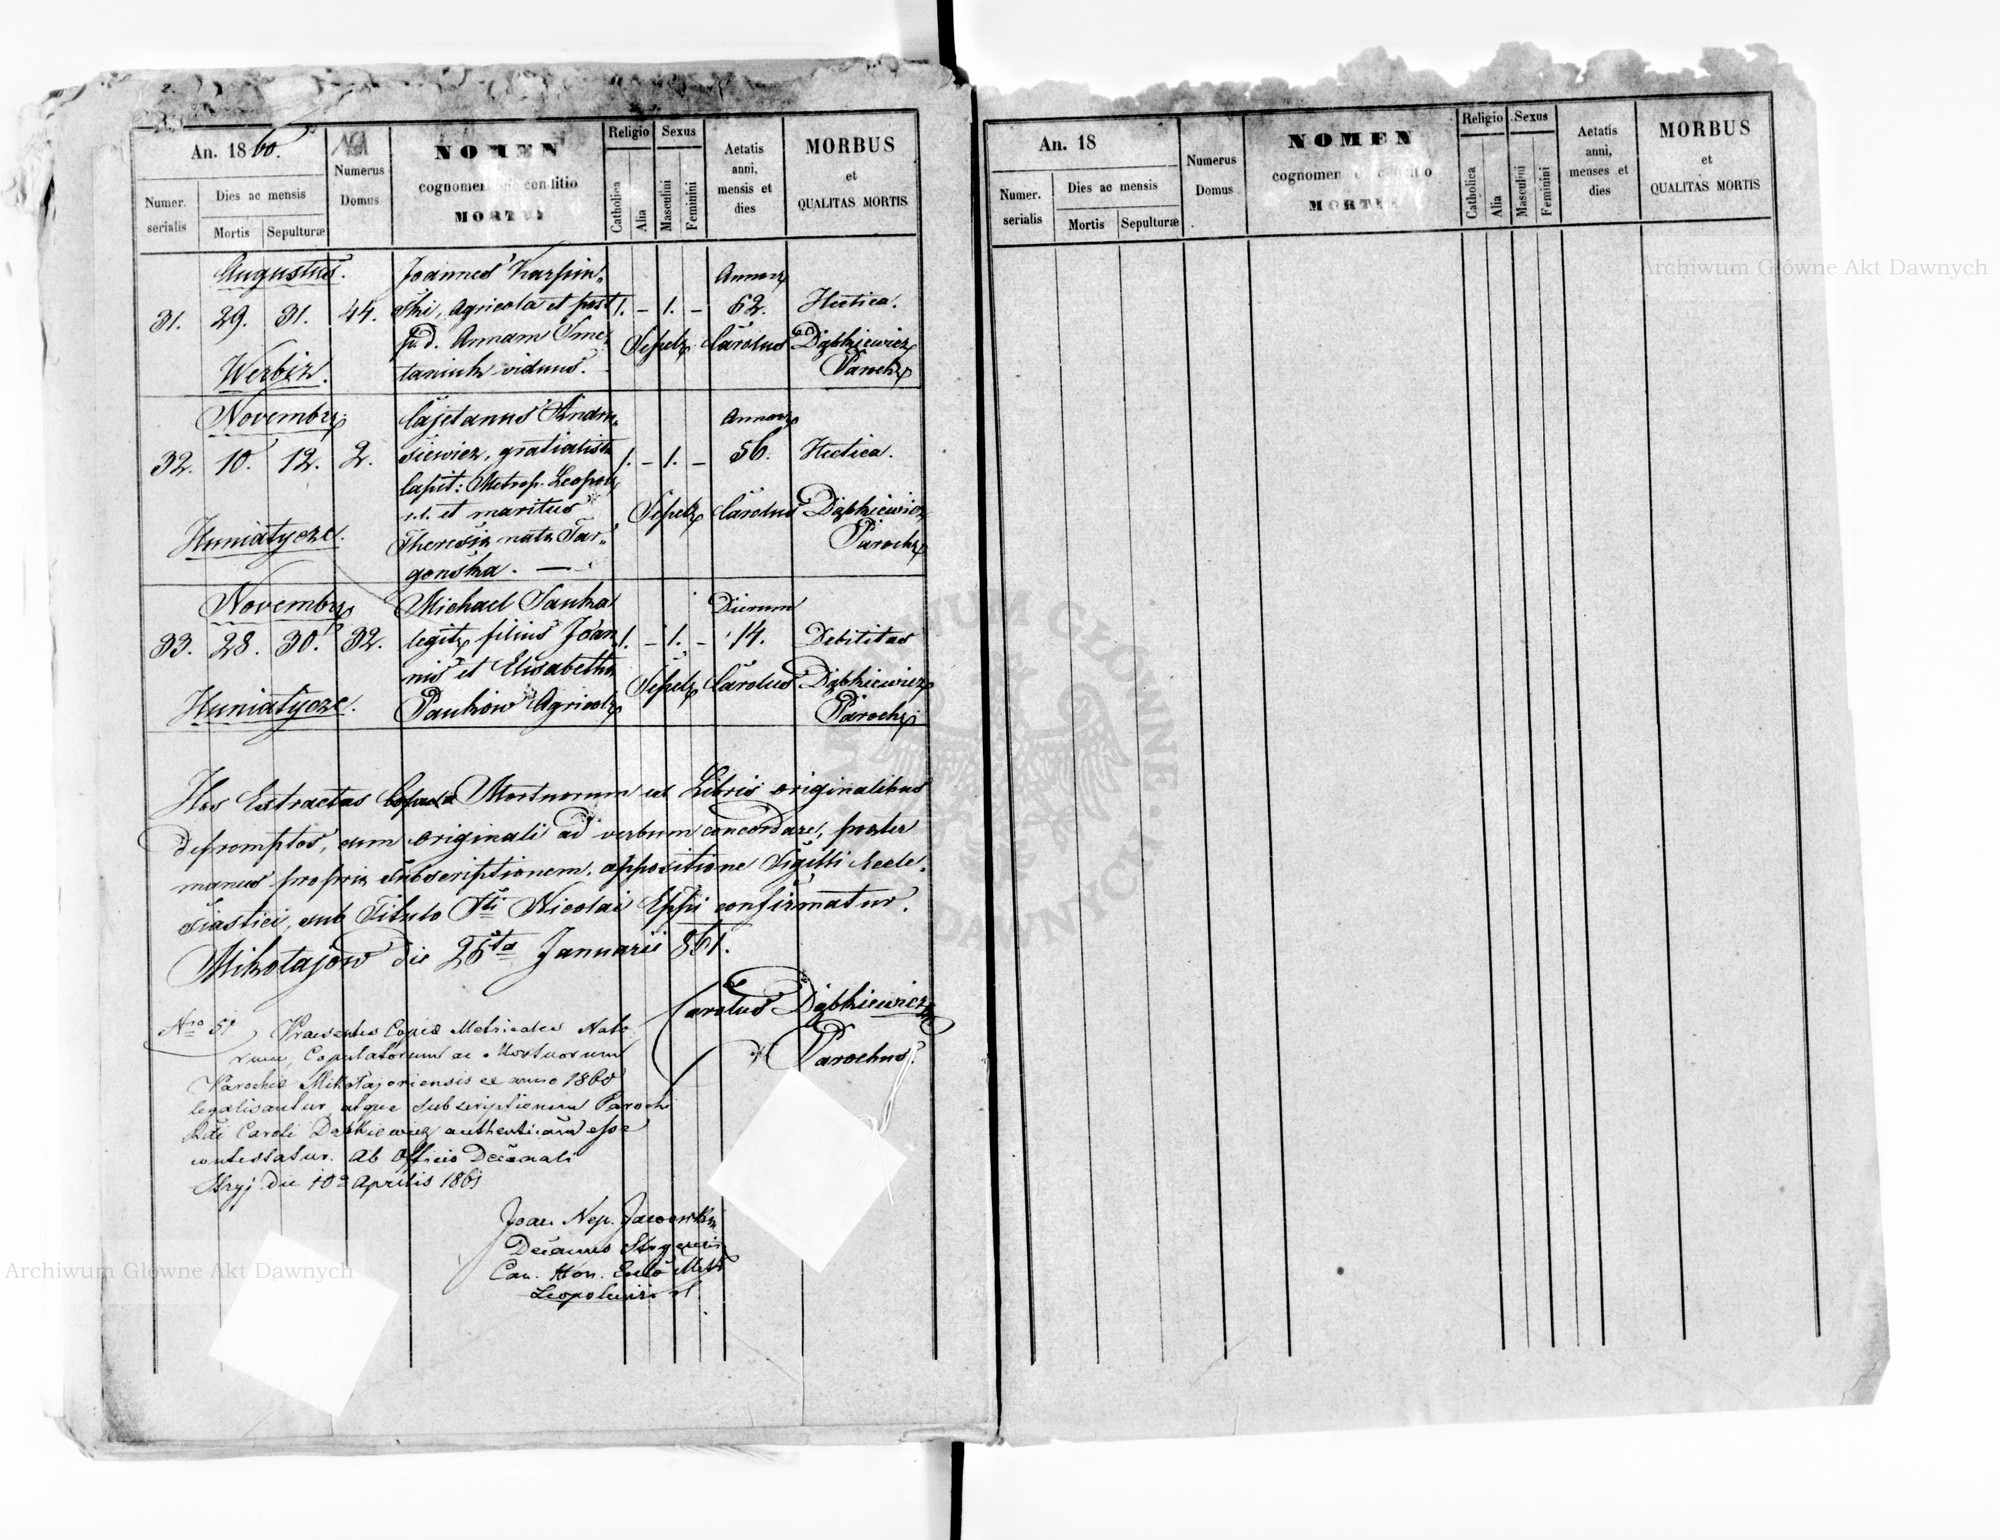 An. 1860.
Numer. serialis
Dies ac mensis
Mortis
Sepulturæ
Numerus Domus
NOMEN
cognomen conditio
MORTUI
Religio
Catholica
Alia
Sexus
Masculini
Feminini
Aetatis anni, mensis et dies
MORBUS
et
QUALITAS MORTIS
Augustus. Joannes Karpin„ Annor
31. 29. 31. 44. ski, Agricola et post 1. – 1. – 62. Hectica.
p. d. Annam Sme Sepel Carolus Dąbkiewicz
Werbiz. taniuk viduus. Paroch
Novembr Cajetanus Andru„ Annor
32. 10. 12. 2. siewicz, gratialista 1. – 1. – 56. Hectica.
Capit: Metrop. Leopol
r. l. et maritus Sepel Carolus Dąbkiewicz
Huniatycze. Theresiæ natæ Tar„ Paroch
gońska. —
Novembr Michael Pauka Dierum
33. 28. 30. 32. legit filius Joan 1. – 1. – 14. Debilitas
nis et Elisabetha Sepel Carolus Dąbkiewicz
Huniatycze. Paukow Agricol Paroch
Hos Extractus Mortuorum ex Libris originalibus
depromptos, cum originali ad verbum concordare, præter
manus propriæ subscriptionem, appositione Sigilli Eccle„
siastici, sub Titulo Sti Nicolai Eppi confirmatur.
Mikołajow die 25ta Januarii 861.
Carolus Dąbkiewicz
Parochus.
Nro 51 Praesentes Copiæ Metricales Nato
rum, Copulatorum ac Mortuorum
Parochiæ Mikołajoviensis ex anno 1860
legalisantur, atque subscriptionem Paroch
Rdi Caroli Dąbkiewicz authenticam esse
contestatur. Ab Officio Decanali
Stryj die 10a Aprilis 1861
Joan. Nep. Jaworski
Decanus Stryensis
Can. Hon. Metr
Leopoliensis r. l.
An. 18
Numer. serialis
Dies ac mensis
Mortis
Sepulturæ
Numerus Domus
NOMEN
cognomen conditio
MORTUI
Religio
Catholica
Alia
Sexus
Masculini
Feminini
Aetatis anni, menses et dies
MORBUS
et
QUALITAS MORTIS
Archiwum Główne Akt Dawnych
Archiwum Główne Akt Dawnych
ARCHIWUM GŁÓWNE AKT DAWNYCH